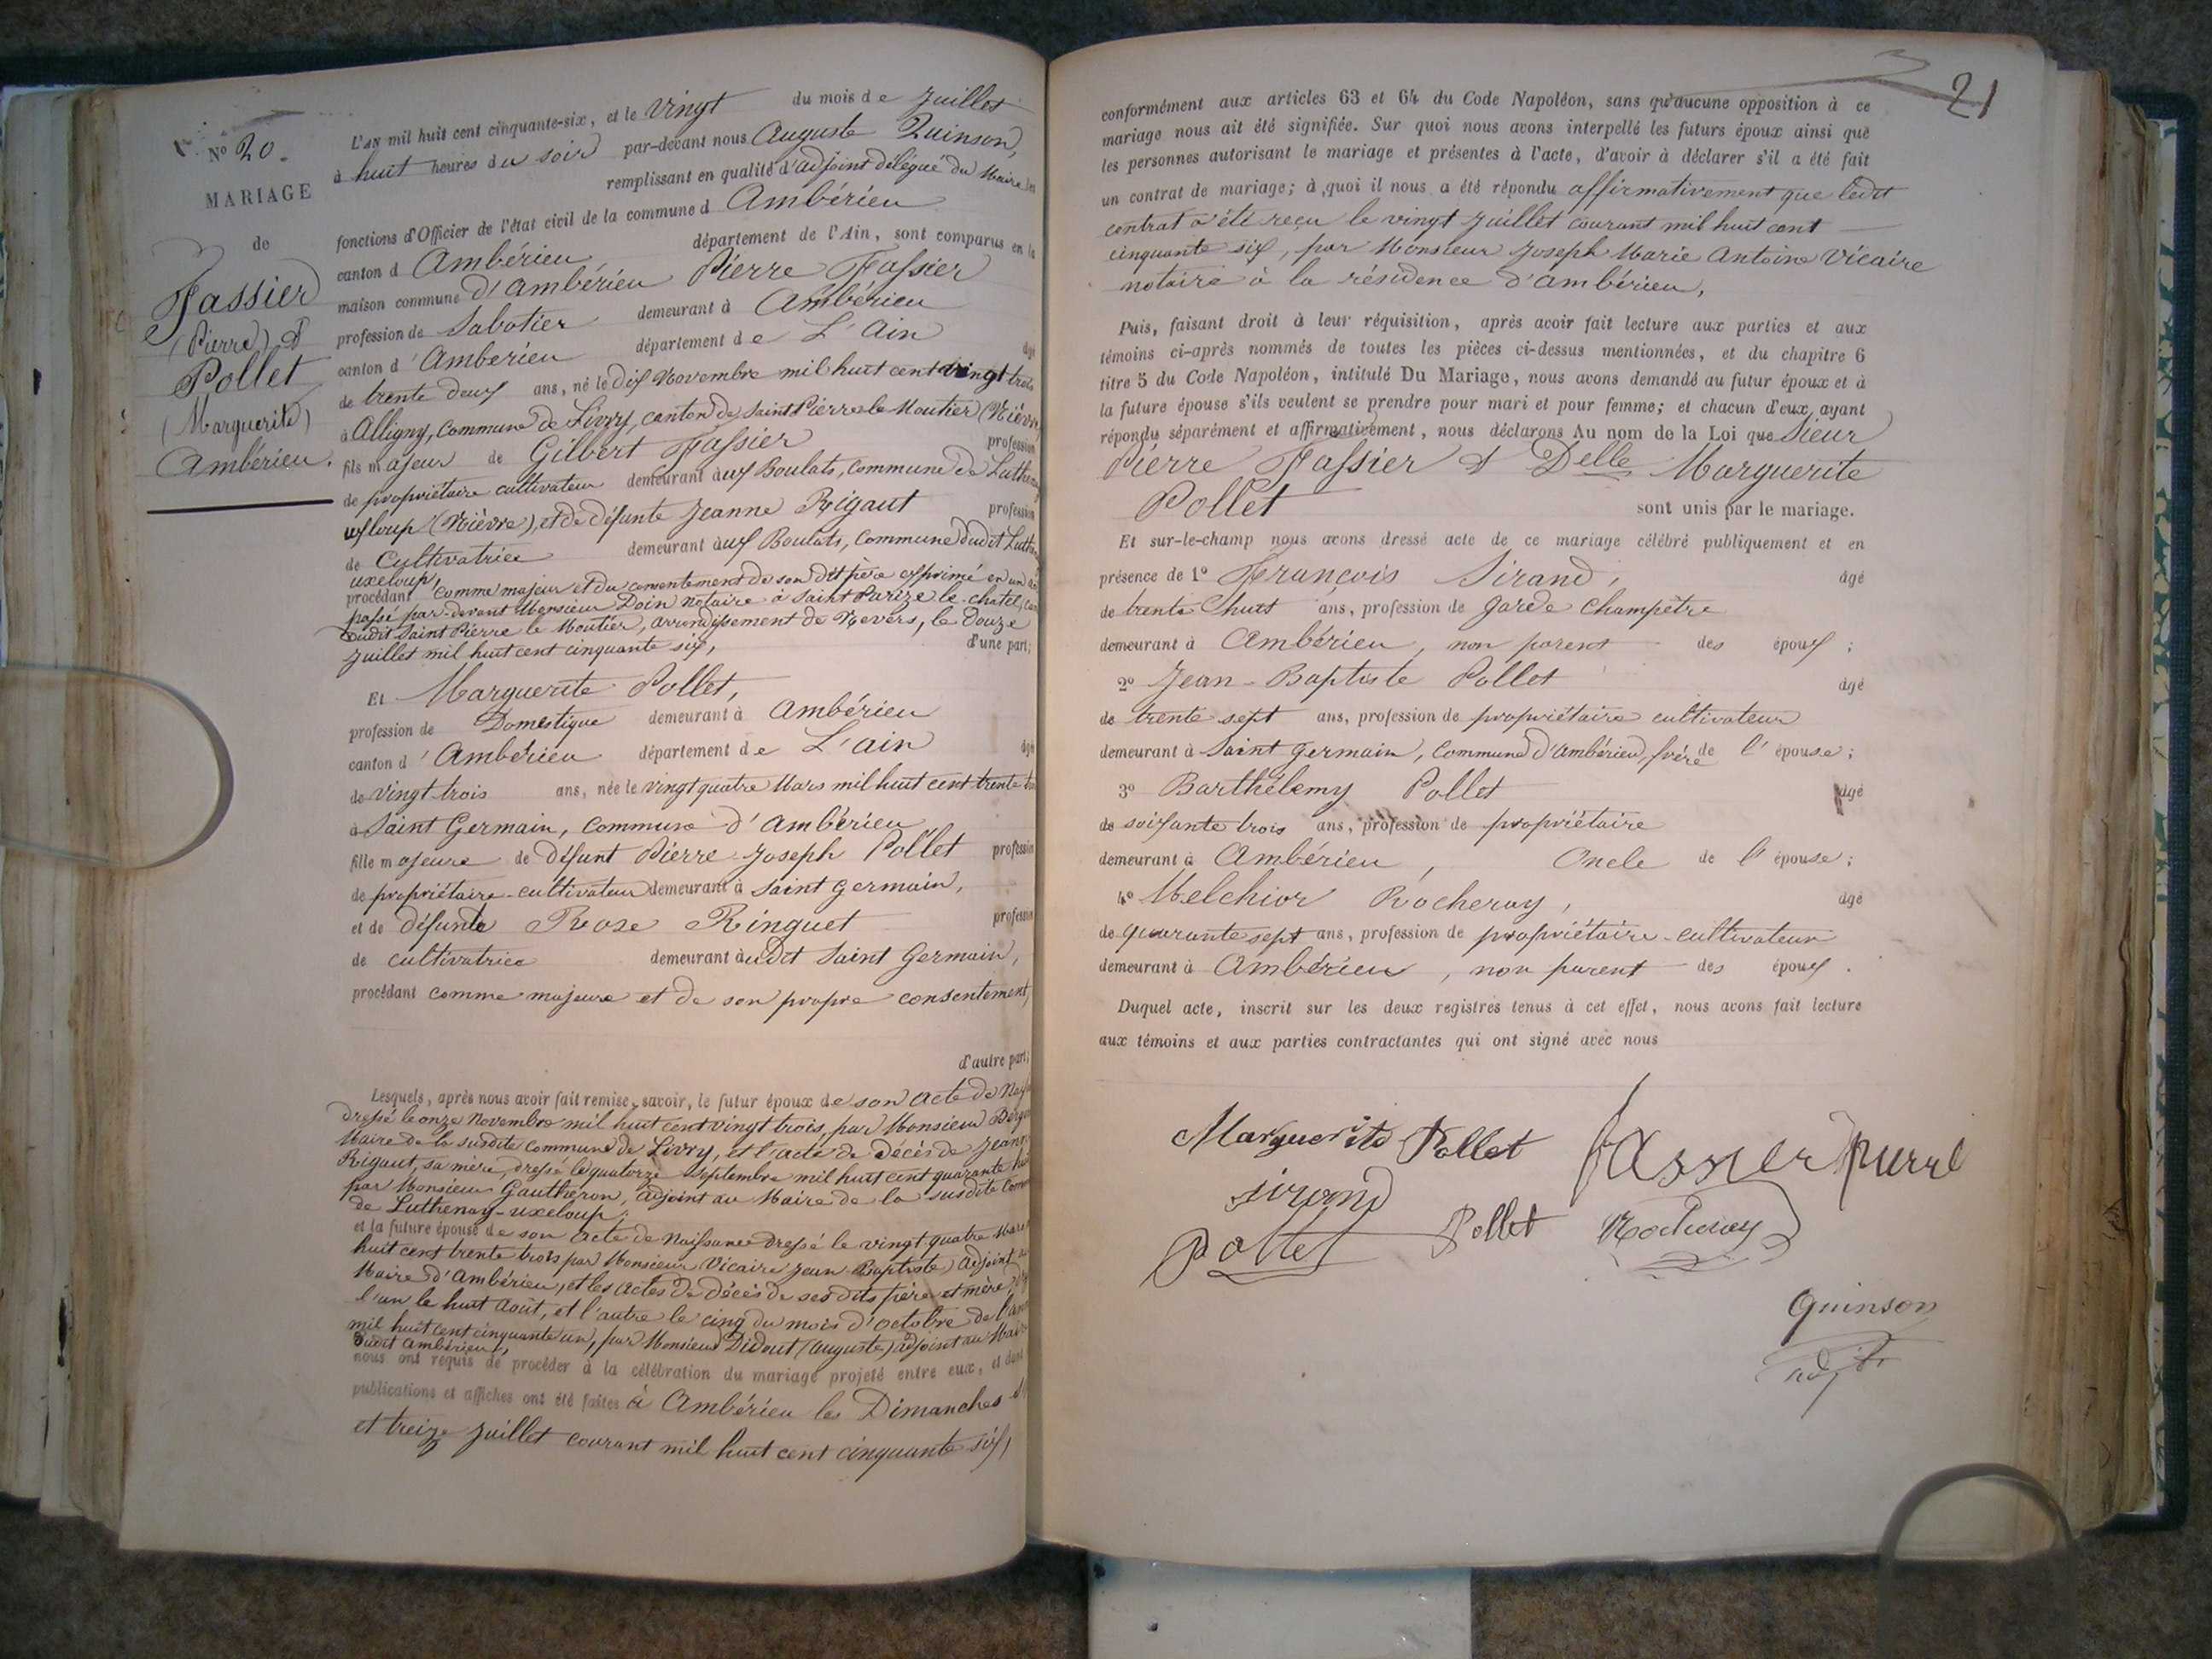 Nº 20.
MARIAGE
de
Fassier
(Pierre) et
Pollet
(Marguerite)
Ambérieu.
L'AN mil huit cent cinquante-six, et le vingt du mois de Juillet
à huit heures du soir par-devant nous Auguste Quinson,
remplissant en qualité d'adjoint délégué du Maire les
fonctions d'Officier de l'état civil de la commune d Ambérieu
canton d Ambérieu, département de l'Ain, sont comparus en la
maison commune d'Ambérieu Pierre Fassier
profession de Sabotier demeurant à Ambérieu
canton d'Amberieu département de L'Ain âgé
de trente deux ans, né le dix Novembre mil huit cent vingt trois
à Alligny, Commune de Livry, canton de Saint Pierre le Moutier (Nièvre)
fils majeur de Gilbert Fassier profession
de propriétaire cultivateur demeurant aux Boulats, Commune de Luthenay
uxloup (Nièvre), et de défunte Jeanne Rigaut profession
de Cultivatrice demeurant aux Boulats, Commune dudit Luthenay
uxeloup,
procédant comme majeur et du consentement de son dit père exprimé en un acte
passé par-devant Monsieur Doin Notaire à Saint Parize le chatel, canton
dudit Saint Pierre le Moutier, arrondissement de Nevers, le douze
Juillet mil huit cent cinquante six, d'une part;
Et Marguerite Pollet,
profession de Domestique demeurant à Ambérieu
canton d'Ambérieu département de L'ain âgé
de vingt-trois ans, née le vingt quatre Mars mil huit cent trente trois
à Saint Germain, Commune d'Ambérieu
fille majeure de défunt Pierre-Joseph Pollet profession
de propriétaire-cultivateur demeurant à Saint Germain,
et de défunte Rose Ringuet profession
de cultivatrice demeurant audit Saint Germain,
procédant comme majeure et de son propre consentement,
d'autre part;
Lesquels, après nous avoir fait remise, savoir, le futur époux de son acte de Naissance
dressé le onze Novembre mil huit cent vingt trois, par Monsieur
Maire de la susdite commune de Livry, et l'acte de décès de Jeanne
Rigaut, sa mère, dressé le quatorze septembre mil huit cent quarante huit
par Monsieur Gautheron, adjoint au Maire de la susdite Commune
de Luthenay-uxeloup;
et la future épouse de son acte de Naissance dressé le vingt quatre Mars
huit cent trente trois par Monsieur Vicaire Jean Baptiste) adjoint au
Maire d'Ambérieu, et les actes de décès de ses dits père et mère
l'un le huit Août, et l'autre le cinq du mois d'octobre de l'an
mil huit cent cinquante un, par Monsieur Didout (Auguste) adjoint au Maire
dudit Ambérieu,
nous ont requis de procéder à la célébration du mariage projeté entre eux, et dont
publications et affiches ont été faites à Ambérieu les Dimanches
et treize Juillet courant mil huit cent cinquante six,
21
conformément aux articles 63 et 64 du Code Napoléon, sans qu'aucune opposition à ce
mariage nous ait été signifiée. Sur quoi nous avons interpellé les futurs époux ainsi que
les personnes autorisant le mariage et présentes à l'acte, d'avoir à déclarer s'il a été fait
un contrat de mariage; à quoi il nous a été répondu affirmativement que ledit
contrat a été reçu le vingt Juillet courant mil huit cent
cinquante six, par Monsieur Joseph Marie Antoine Vicaire
notaire à la résidence d'ambérieu,
Puis, faisant droit à leur réquisition, après avoir fait lecture aux parties et aux
témoins ci-après nommés de toutes les pièces ci-dessus mentionnées, et du chapitre 6
titre 5 du Code Napoléon, intitulé Du Mariage, nous avons demandé au futur époux et à
la future épouse s'ils veulent se prendre pour mari et pour femme; et chacun d'eux ayant
répondu séparément et affirmativement, nous déclarons Au nom de la Loi que Sieur
Pierre Fassier et Delle Marguerite
Pollet sont unis par le mariage.
Et sur-le-champ nous avons dressé acte de ce mariage célébré publiquement et en
présence de 1º François Sirand, âgé
de trente huit ans, profession de garde champêtre
demeurant à Ambérieu, non parent des époux;
2º Jean-Baptiste Pollet âgé
de trente sept ans, profession de propriétaire cultivateur
demeurant à Saint germain, Commune d'Ambérieu, frère de l'épouse;
3º Barthélemy Pollet âgé
de soixante trois ans, profession de propriétaire
demeurant à Ambérieu, Oncle de l'épouse;
4º Melchior Rocheray, âgé
de quarante sept ans, profession de propriétaire-cultivateur
demeurant à Ambérieu, non parent des époux.
Duquel acte, inscrit sur les deux registres tenus à cet effet, nous avons fait lecture
aux témoins et aux parties contractantes qui ont signé avec nous
Marguerite Pollet fassier pierre
sirand
Pollet Pollet Rocheray
Quinson
adjt